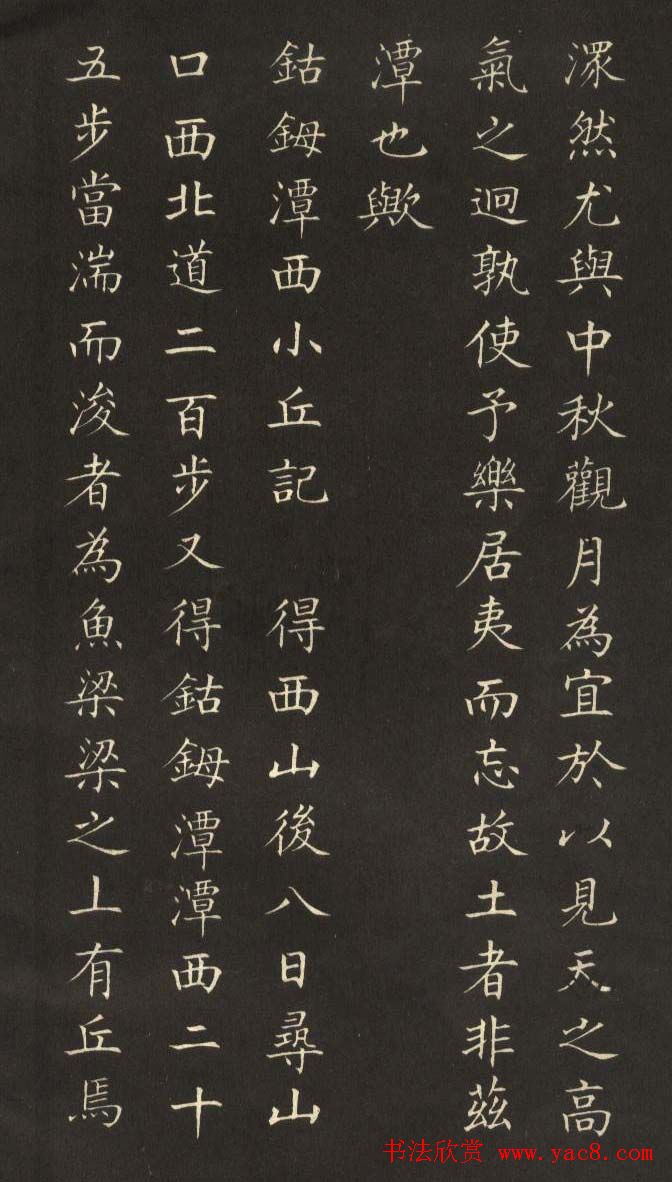 潀然尤與中秋觀月為宜於以見天之高
氣之迥孰使予樂居夷而忘故土者非茲
潭也歟
鈷鉧潭西小丘記　得西山後八日尋山
口西北道二百步又得鈷鉧潭潭西二十
五步當湍而浚者為魚梁梁之上有丘焉
书法欣赏 www.yac8.com